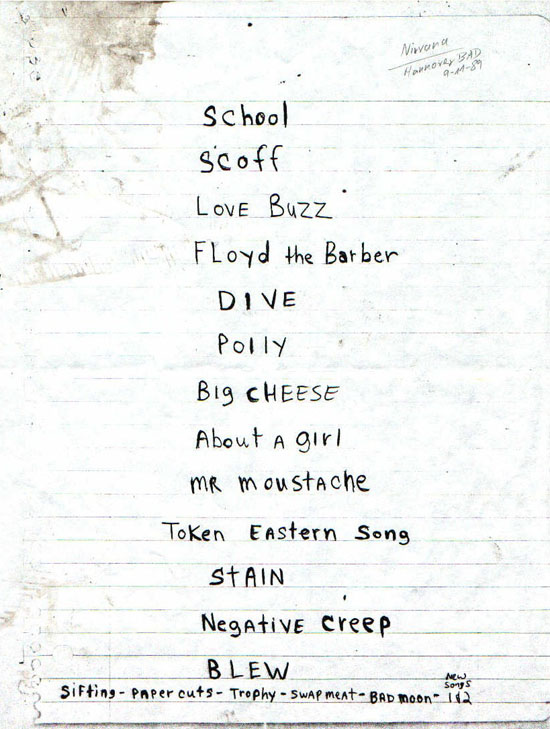 Nirvana
Hannover BAD
9-11-89
School
Scoff
LOVE BUZZ
FLoyd the Barber
DIVE
POlly
Big CHEESE
About A girl
MR moustAche
ToKen EAStern Song
STAIN
NegAtIVE creep
BLEW
New
Songs
Sifting - PAPER cuts - Trophy - SWAP meAt - BAD moon - 1&2